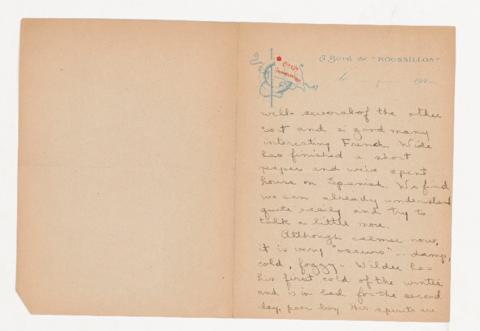 A Bord de "ROUSSILLON"
le 192
well several of the other
sort and a good many
interesting French. Wide
has finished a short
paper and we've spent
hours on Spanish. We find
we can already understand
quite easily and try to
talk a little more.
Although calmer now,
it is very "oscuro" - damp,
cold, foggy - Wilder has
his first cold of the winter
and is in bed for the second
day, poor boy. His spirits are